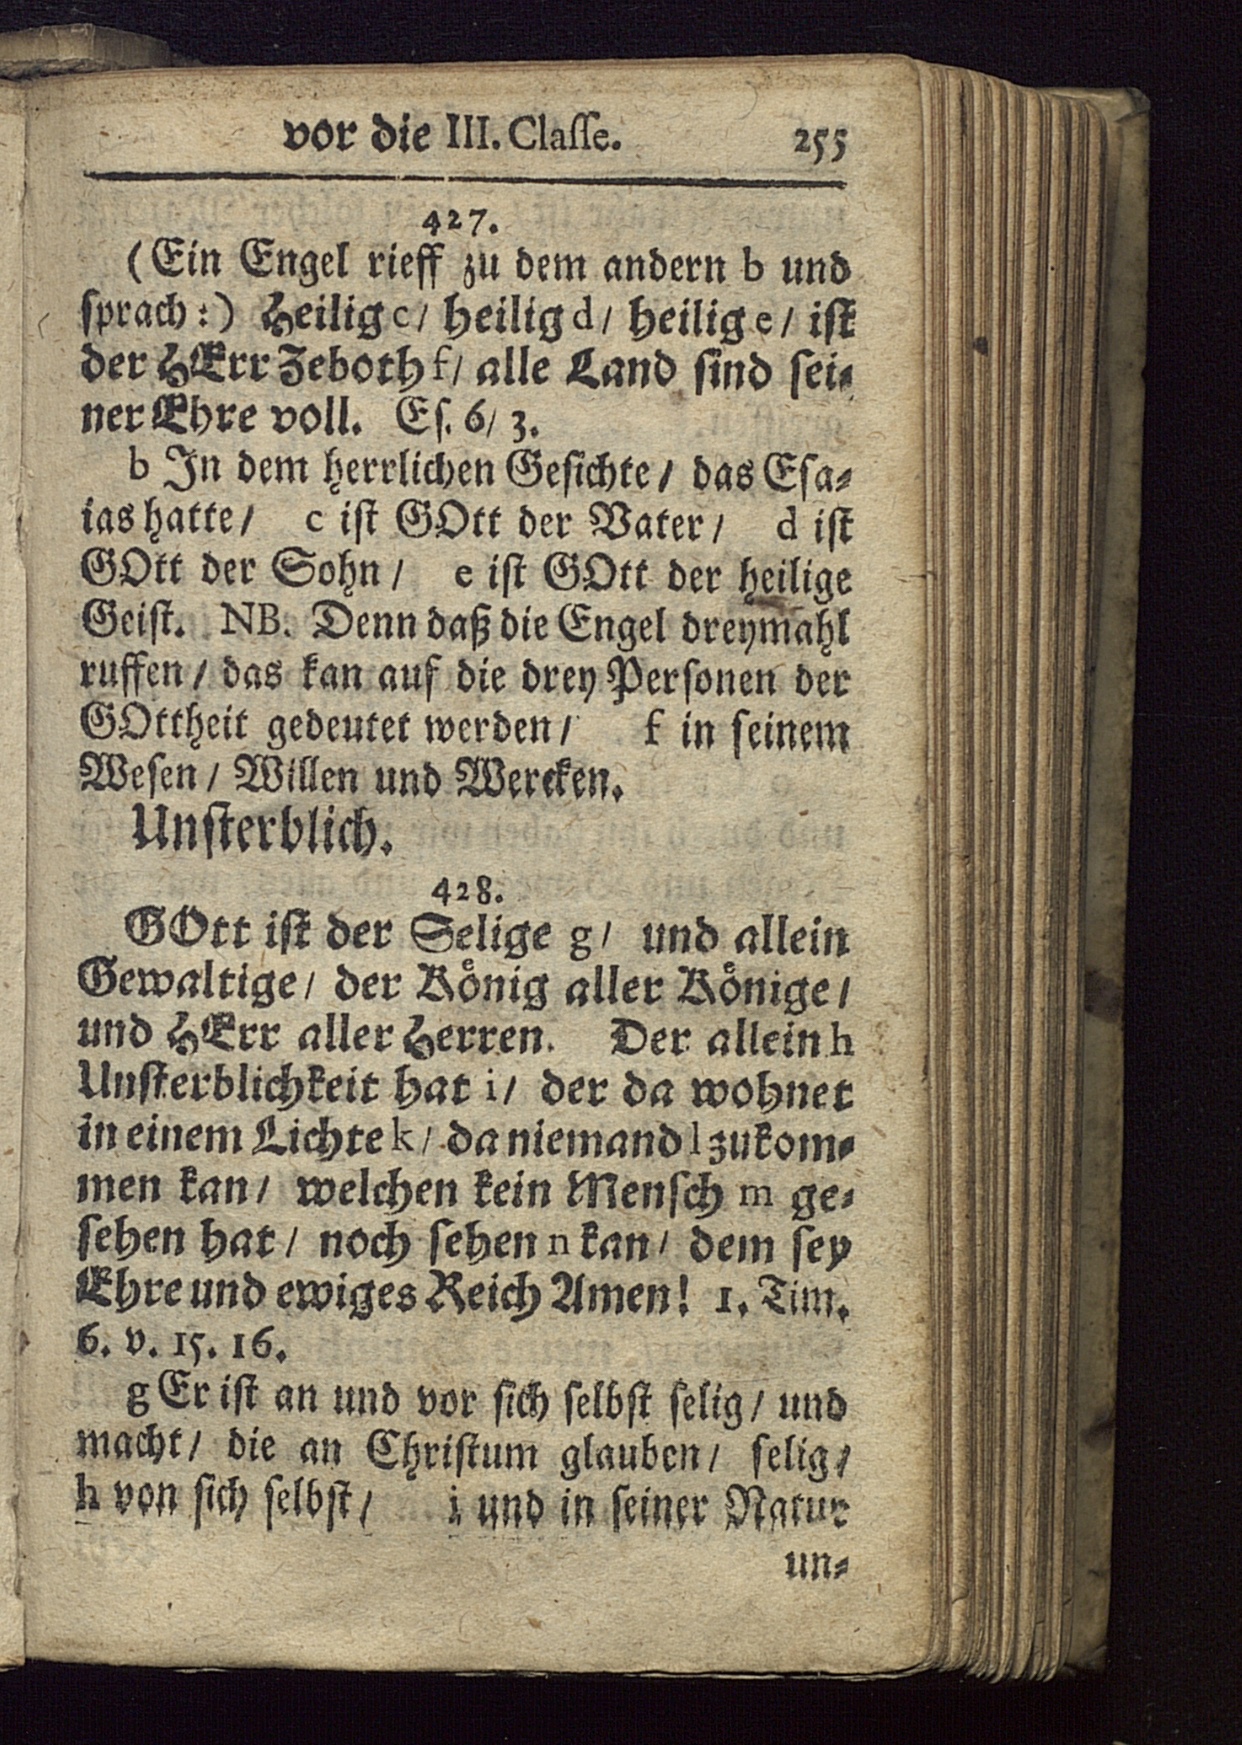 vor die III. Claſſe. 255
427.
(Ein Engel rieff zu dem andern b und
ſprach:) Heilig c/ heilig d/ heilig e/ iſt
der HErr Zeboth f/ alle Land ſind ſei-
ner Ehre voll. Eſ. 6/ 3.
b In dem herrlichen Geſichte/ das Eſa-
ias hatte/ c iſt GOtt der Vater/ d iſt
GOtt der Sohn/ e iſt GOtt der heilige
Geiſt. NB. Denn daß die Engel dreymahl
ruffen/ das kan auf die drey Perſonen der
GOttheit gedeutet werden/ f in ſeinem
Weſen/ Willen und Wercken.
Unſterblich.
428.
GOtt iſt der Selige g/ und allein
Gewaltige/ der Koͤnig aller Koͤnige/
und HErr aller Herren. Der allein h
Unſterblichkeit hat i/ der da wohnet
in einem Lichte k/ da niemand l zukom-
men kan/ welchen kein Menſch m ge-
ſehen hat/ noch ſehen n kan/ dem ſey
Ehre und ewiges Reich Amen! 1. Tim.
6. v. 15. 16.
g Er iſt an und vor ſich ſelbſt ſelig/ und
macht/ die an Chriſtum glauben/ ſelig/
h von ſich ſelbſt/ i und in ſeiner Natur
un-